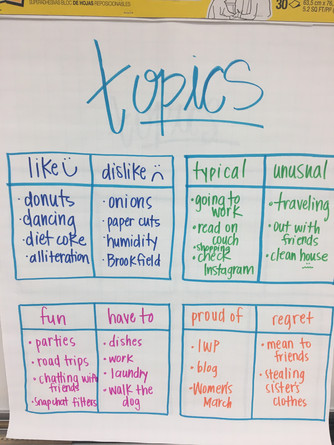 SUPERADHESIVAS BLOC DE HOJAS REPOSICIONABLES
30
63,5 cm x 76,
5.2 SQ FT/PP
topics
like
donuts
dancing
diet coke
alliteration
dislike
onions
paper cuts
humidity
Brookfield
typical
going to
work
read on
couch
shopping
check
Instagram
unusual
traveling
out with
friends
clean house
fun
parties
road trips
chatting with
friends
Snapchat filters
have to
dishes
work
laundry
walk the
dog
proud of
IWP
blog
Women's
March
regret
mean to
friends
stealing
sister's
clothes